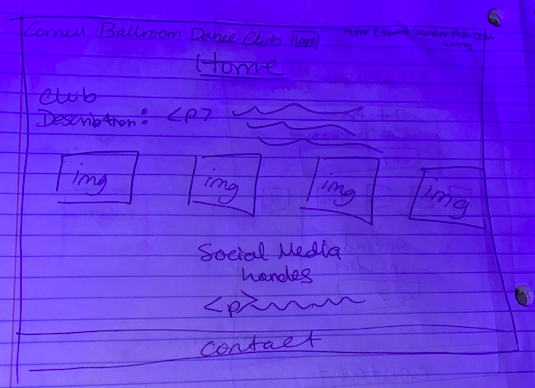 Cornell Ballroom Dance Club logo Home E-board Calendar
Home
Club
Description: <p>
img img img img
Social Media
handes
<p>
contact